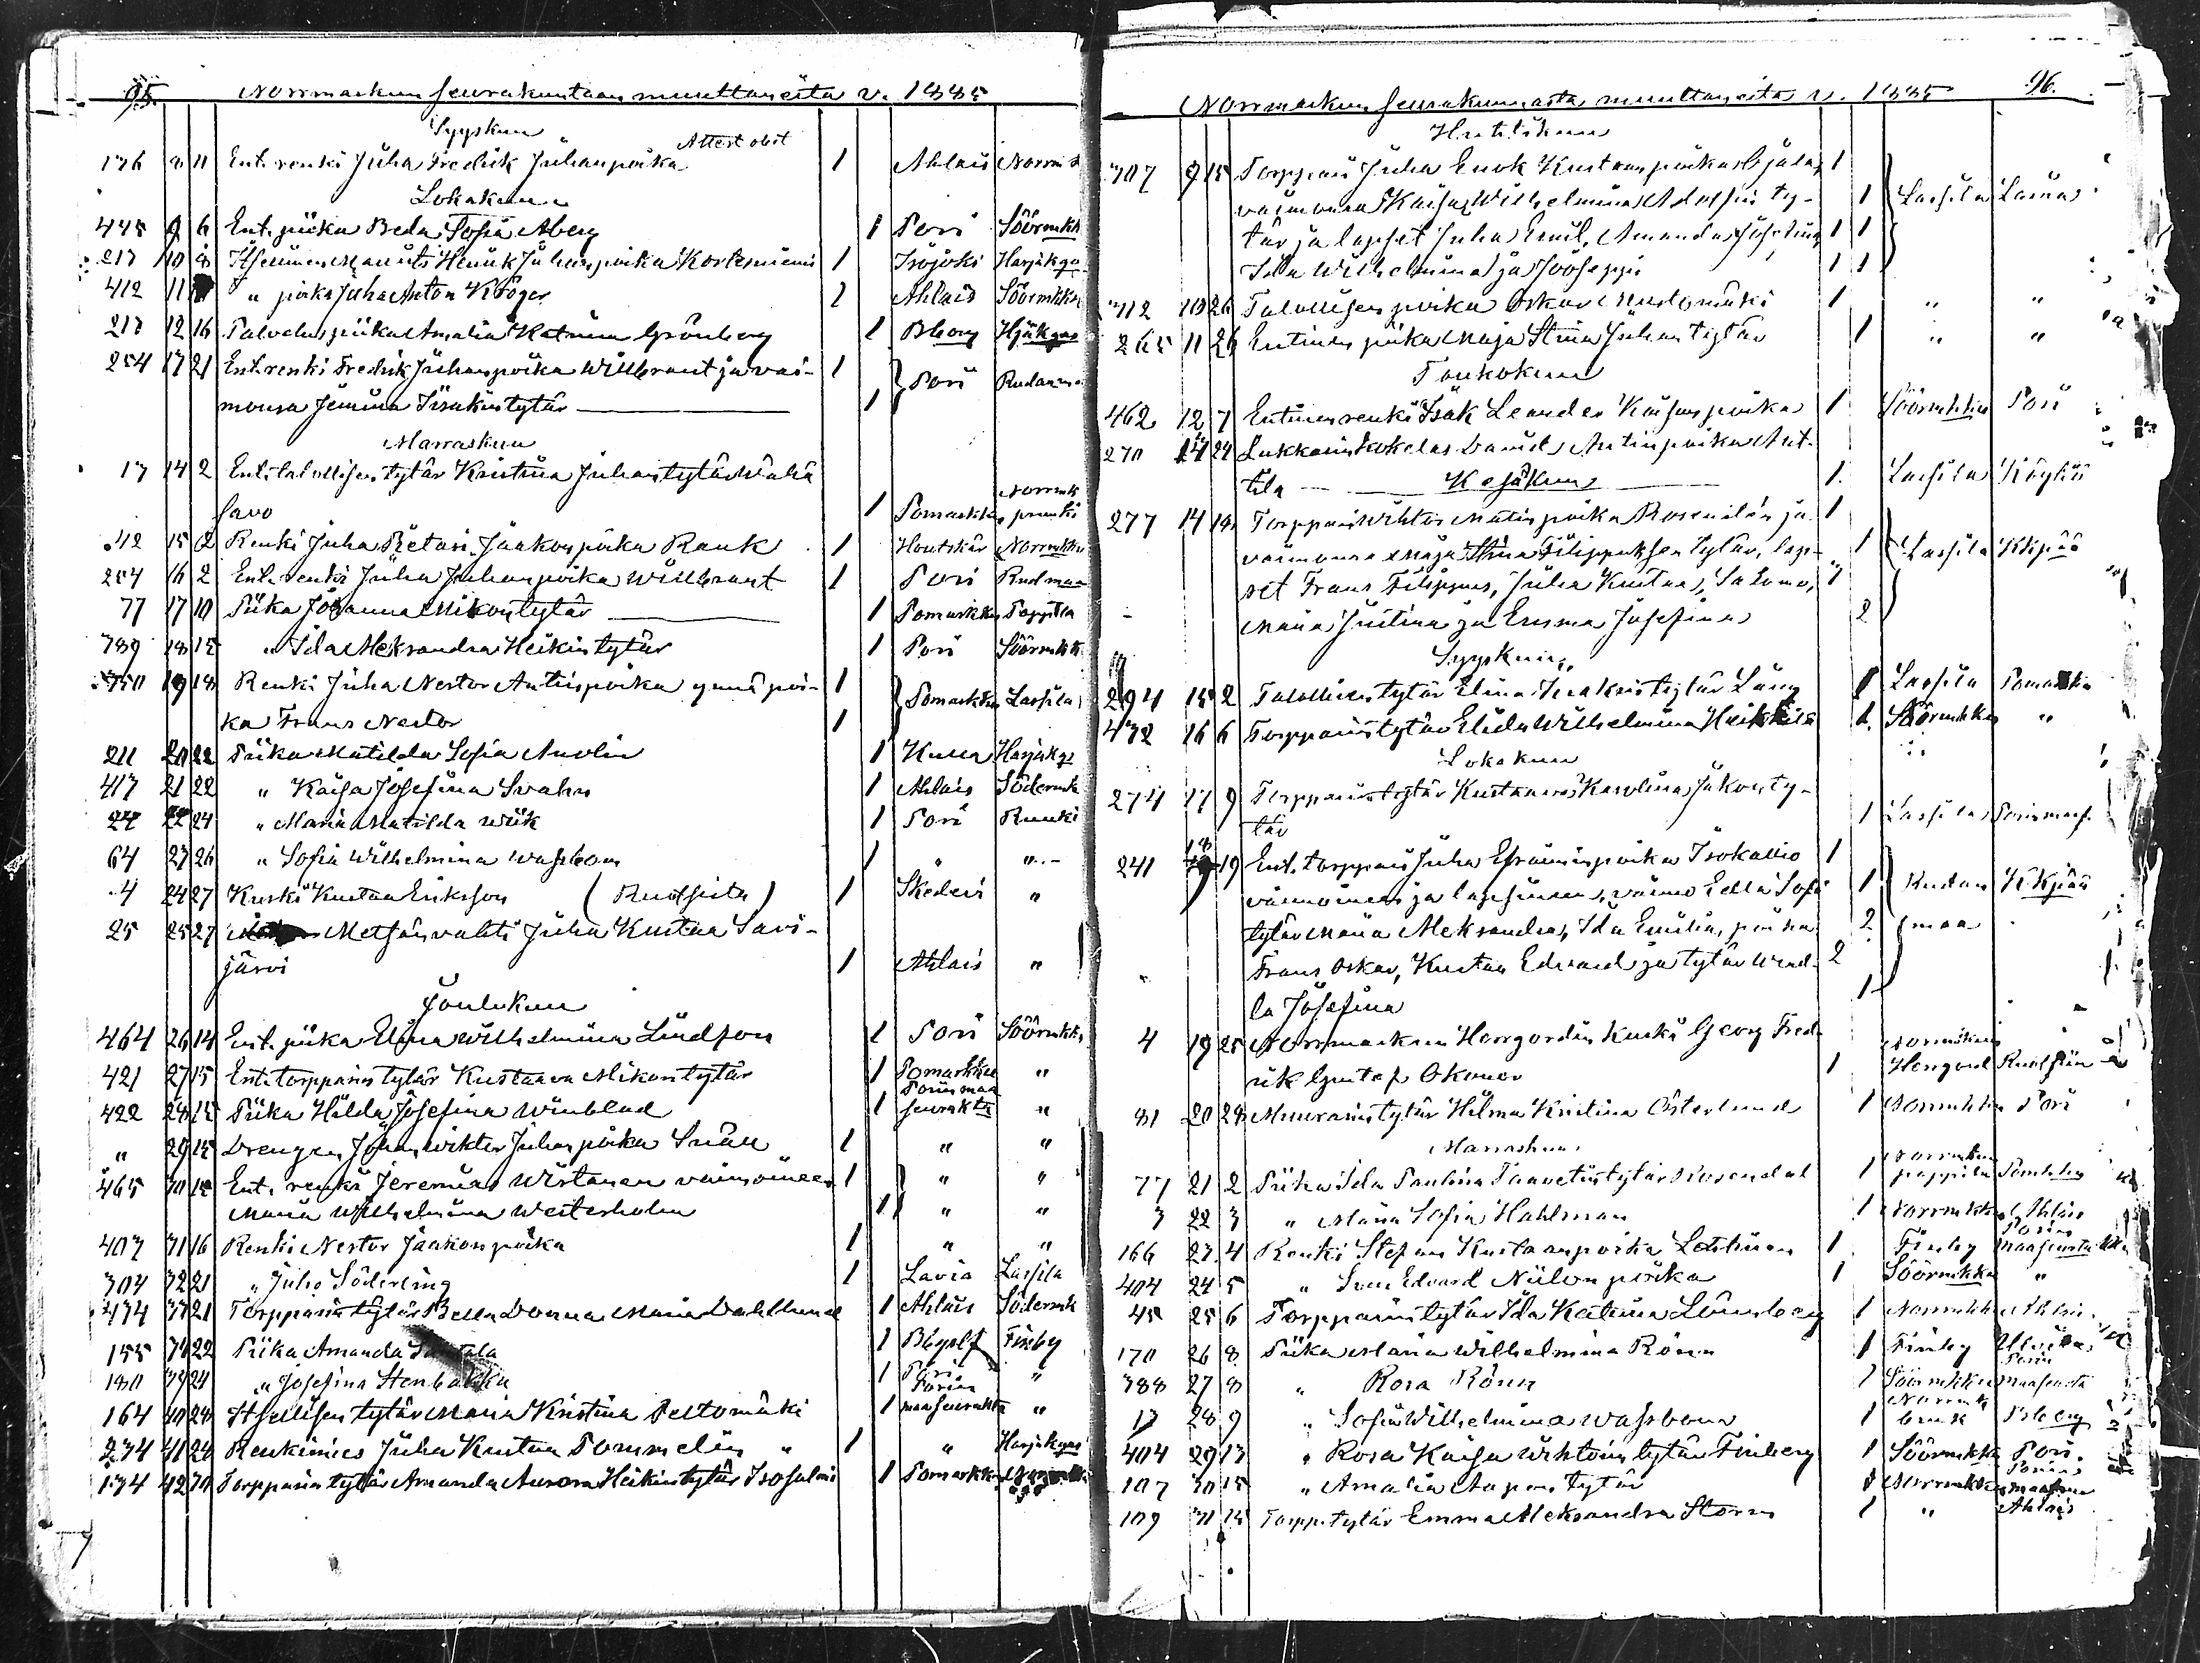 95. Norrmarkun seurakuntaan muuttaneita v. 1885
Syyskuu
Attest obst
136 8 11 Ent. renki Juha Fredrik Juhanpoika 1 Ahlais
Lokakuu
445 9 6 Ent. piika Beda Sofia Åberg 1 Pori Söörmkk
217 10 8 Itsellinen Henrik Juhanpoika Korkeniemi 1 Isojoki Harjakga
412 11 " poika Juha Anton Kröger 1 Ahlais Söörmkku
217 12 16 Palvelus piika Amalia Katriina Grönberg 1 Bborg Hjäkgas
254 13 21 Ent. renki Fredrik Juhanpoika Willbrant ja vai- 1 Pori Rudanmaa
monsa Jemina Iisakintytär 1
Marraskuu
17 14 2 Ent. talollisen tytär Kristiina Juhantytär Wähä
savo 1 Pomarkku Norrmk pruuki
42 15 2 Renki Juha Rietari Jaakonpoika Rank 1 Houtskär Norrmkku
254 16 2 Ent. renki Juha Juhanpoika Willbrant 1 Pori Rudmaa
77 17 10 Piika Johanna Mikontytär 1 Pomarkku Pappila
389 18 15 " Ida Aleksandra Heikintytär 1 Pori Söörmkk
350 19 18 Renki Juha Nestor Antinpoika ynnä poi- 1 Pomarkku Lassila
ka Frans Nestor 1
211 20 22 Piika Matilda Sofia Anolin 1 Harjakg
417 21 22 " Kaisa Josefina Svahn 1 Ahlais Södermk
24 22 24 " Maria Matilda Wiik 1 Pori Ruuki
64 23 26 " Sofia Wilhelmina Wassbom 1 " "
4 24 27 Kuski Kustaa Eriksson (Ruotsista) 1 Skedevi "
25 25 27 Metsänvahti Juha Kustaa Savi-
järvi 1 Ahlais "
Joulukuu
464 26 14 Ent. piika Elina Wilhelmina Lindfors 1 Pori Söörmkku
421 27 15 Ent. torpparin tytär Kustaava Mikontytär 1 Pomarkku "
422 28 15 Piika Hilda Josefina Winblad 1 Porin maa seurakta "
" 29 15 Drengen Johan Wiktor Juhanpoika 1 " "
465 30 15 Ent. renki Jeremias Wirtanen vaimoineen 1 " "
Maria Wilhelmina Westerholm 1 " "
407 31 16 Renki Nestor Jaakonpoika 1 " "
304 32 21 " Juho Söderling 1 Lavia Lassila
474 33 21 Torpparin tytär Bella Donna Maria Dahllund 1 Ahlais Södermk
155 22 Piika Amanda 1 Finby
180 39 24 " Josefina Stenbakka 1 Pori "
164 40 28 Itsellisen tytär Maria Kristina Peltomäki 1 Porin maaseurakta "
234 41 28 Renkimies Juha Kustaa Pommelin 1 " Harjakgas
134 42 30 Torpparin tytär Amanda Aurora Heikintytär Isosalmi 1 Pomarkku
Norrmarkun seurakunnasta muuttaneita v. 1885 96.
Huhtikuu
307 9 15 Torppari Juha Enok Kustaanpoika 1
vaimonsa Kaisa Wilhelmina Adolfin ty- 1 Lassila Lavia
tär ja lapset Juha Emil, Amanda Josefina 1 1
Ida Wilhelmina ja Jooseppi 1 1
312 10 26 Talollisen poika Oskar Mustamäki 1 " "
265 11 26 Entinen piika Maja Stina Juhantytär 1 " "
Toukokuu
462 12 7 Entinen renki Isak Leander Kaisanpoika 1 Söörmkku Pori
270 13 24 Lukkarin kokelas David Antinpoika Ant-
tila 1 Lassila Köyliö
Kesäkuu
277 14 14 Torppari Wihtor Matinpoika Rosenlöf ja 1
vaimonsa Maja Stina Filippuksen tytär, lap- 1 Lassila Kkpää
set Frans Filippus, Juha Kustaa, Salomo, 3
Maria Justina ja Emma Josefina 2
Syyskuu
294 15 2 Talollisen tytär Elina Iisakintytär Lång 1 Lassila Pomarkku
432 16 6 Torpparin tytär Elida Wilhelmina Heikkilä 1 Söörmkku "
Lokakuu
274 17 9 Torpparin tytär Kustaava Karolina Jakonty-
tär 1 Lassila Porin maas.
241 18 19 Ent. torppari Juha Efraiminpoika Isokallio 1
vaimoineen ja lapsineen, vaimo Edla Sofi 1 Rudan Kkpää
tytär Maria Aleksandra, Ida Emilia, poika 2 maa
Frans Oskar, Kustaa Edvard ja tytär Wend- 2
la Josefina 1
4 19 25 Norrmarkun Herrgordin kuski Georg Fred-
rik Gustaf Okonor 1 Norrmkun Hergord Ruotsiin
81 20 28 Muurarin tytär Hilma Kristina Österlund 1 Norrmkku Pori
Marraskuu
77 21 2 Piika Ida Paulina Taavetin tytär Rosendal 1 Norrmkun pappila Pomkku
3 22 3 " Maria Sofia Hahlman 1 Norrmkku Ahlais
166 23 4 Renki Stefan Kustaanpoika Lehtinen 1 Finby Porin maaseurta
404 24 5 " Sven Edvard Niilon poika 1 Söörmkku "
45 25 6 Torpparin tytär Ida Katriina Lönnberg 1 Norrmkku Ahlais
170 26 8 Piika Maria Wilhelmina Rönn 1 Finby Ulvila
388 27 8 " Rosa Rönn 1 Söörmkku Porin maaseurta
13 28 9 " Sofia Wilhelmina Wassbom 1 Norrmk bruk Bborg
404 29 13 " Rosa Kaisa Wihtorin tytär Finberg 1 Söörmkku Pori
107 30 15 " Amalia Aapontytär 1 Norrmkku Porin maaseu
109 31 15 Torpp. tytär Emma Aleksandra Storm 1 " Ahlais